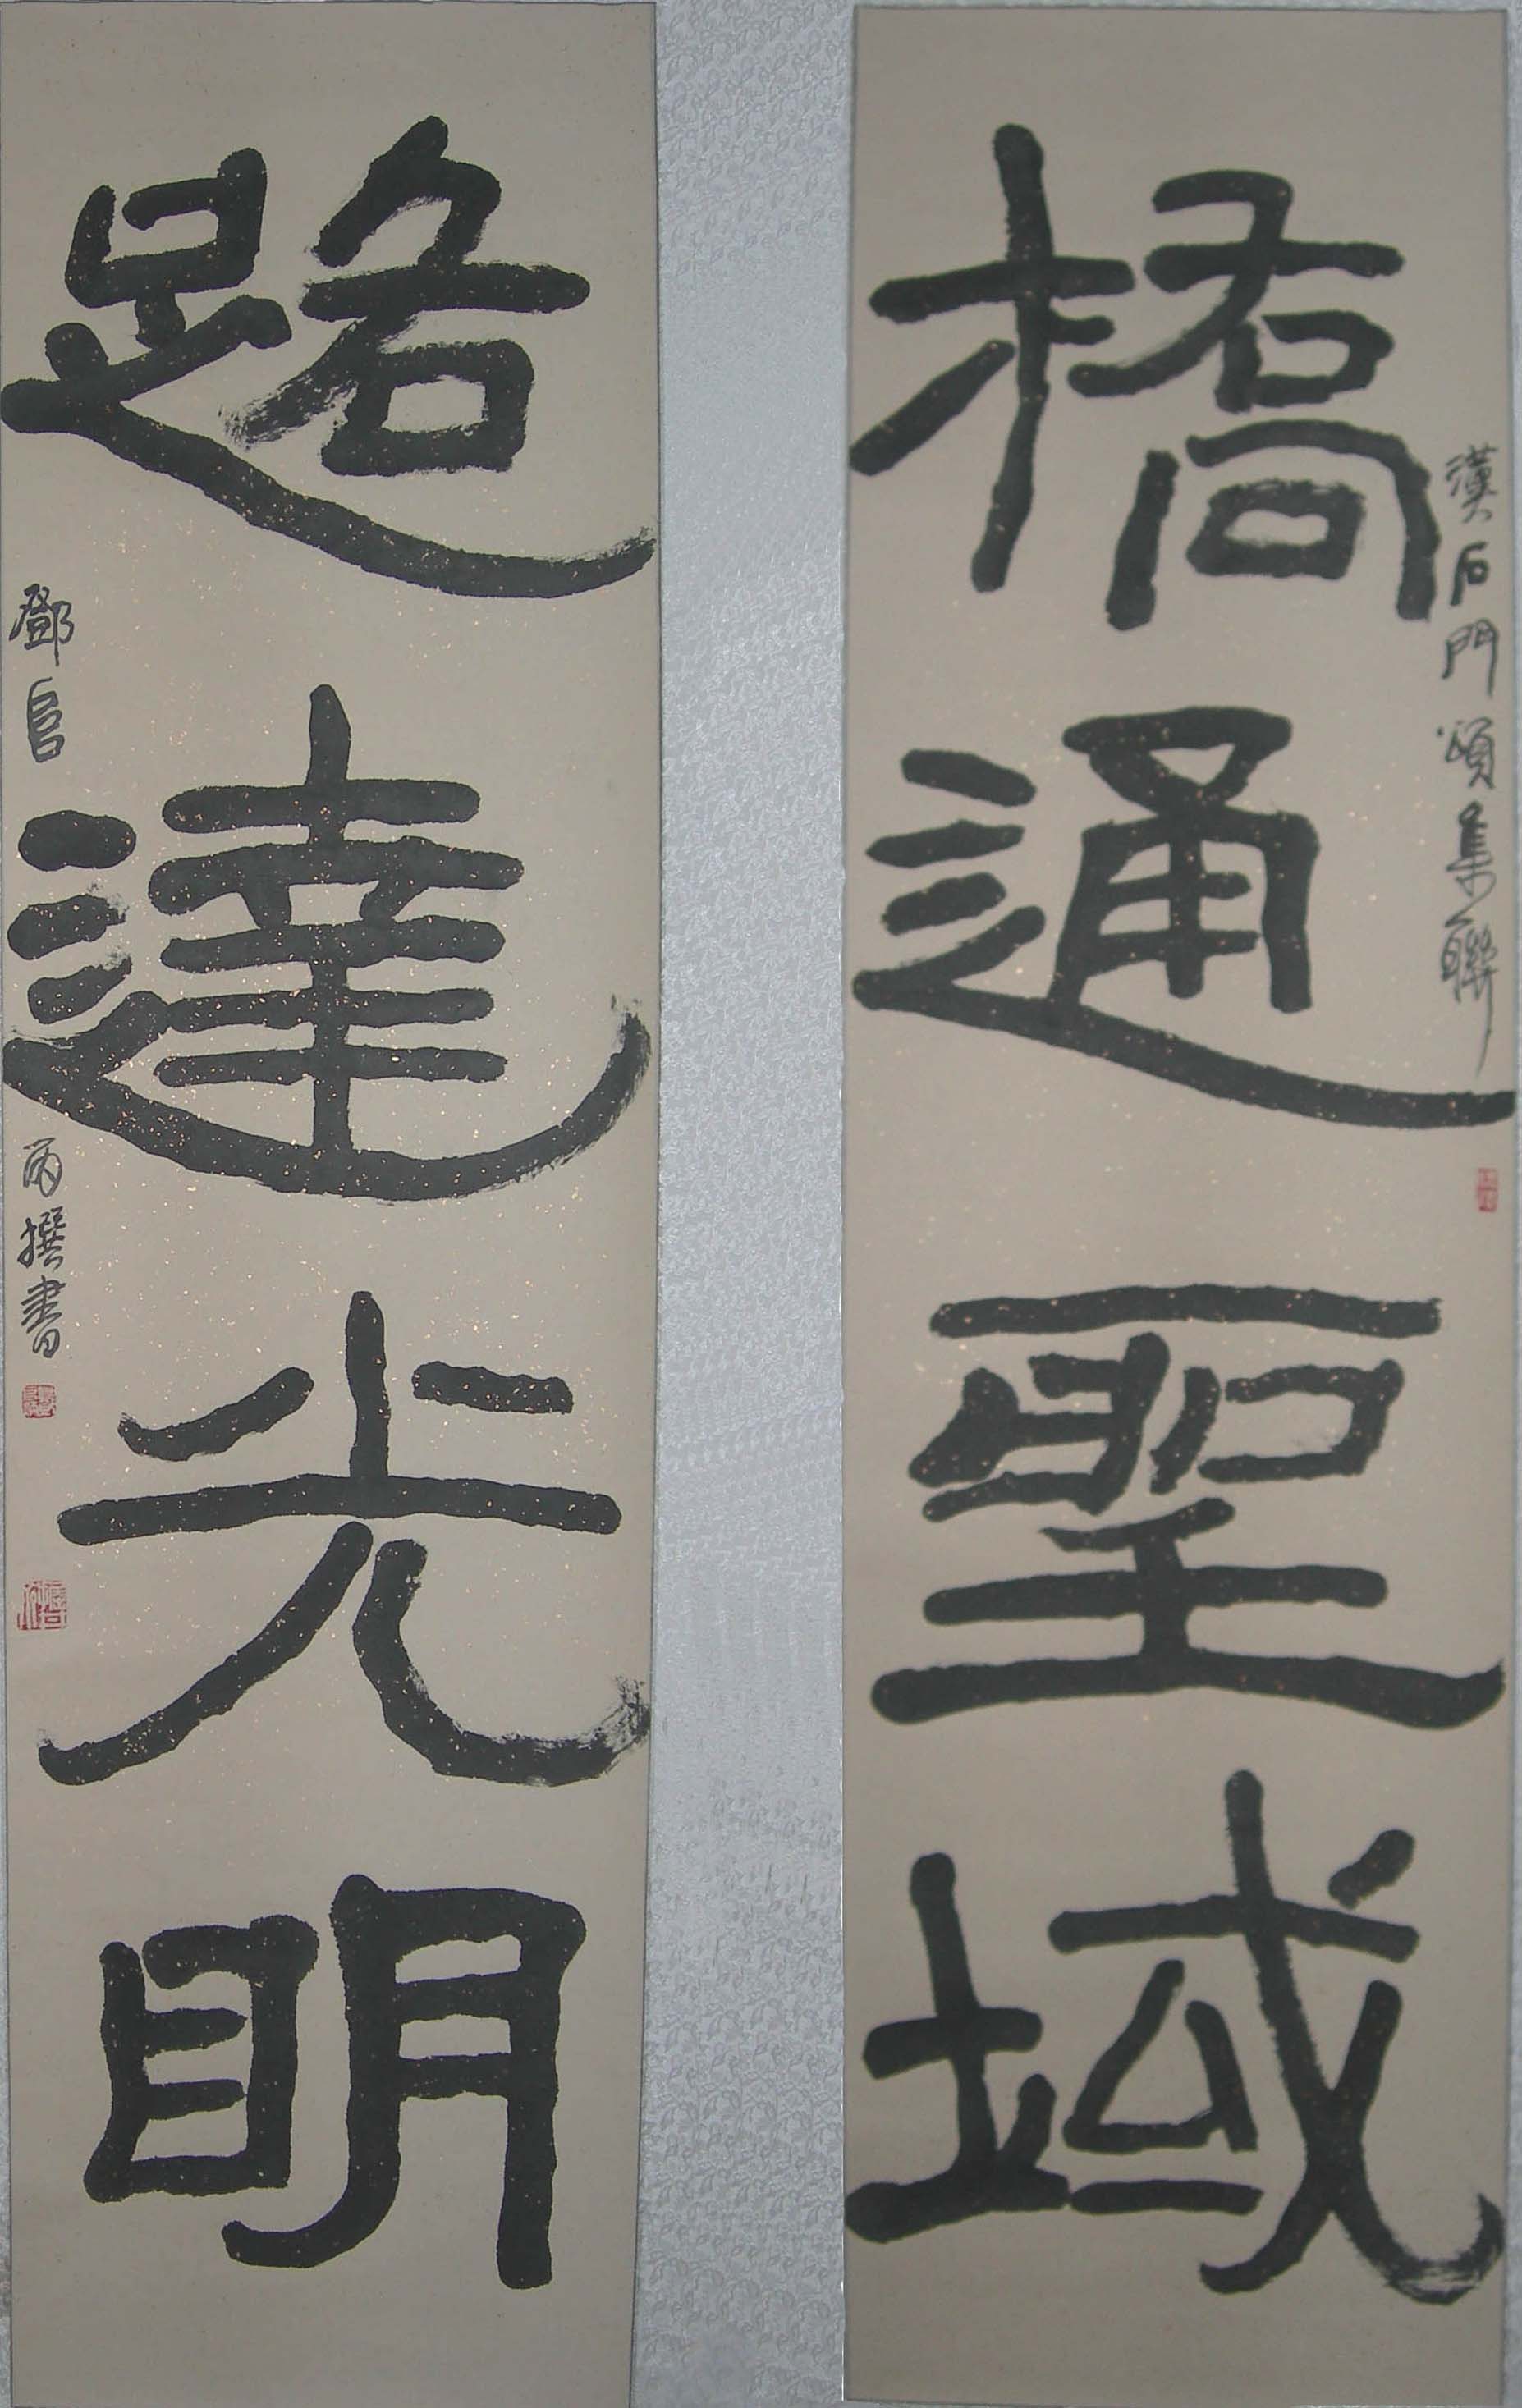 橋通聖域
漢石門頌集聯
路達光明
鄧
撰書